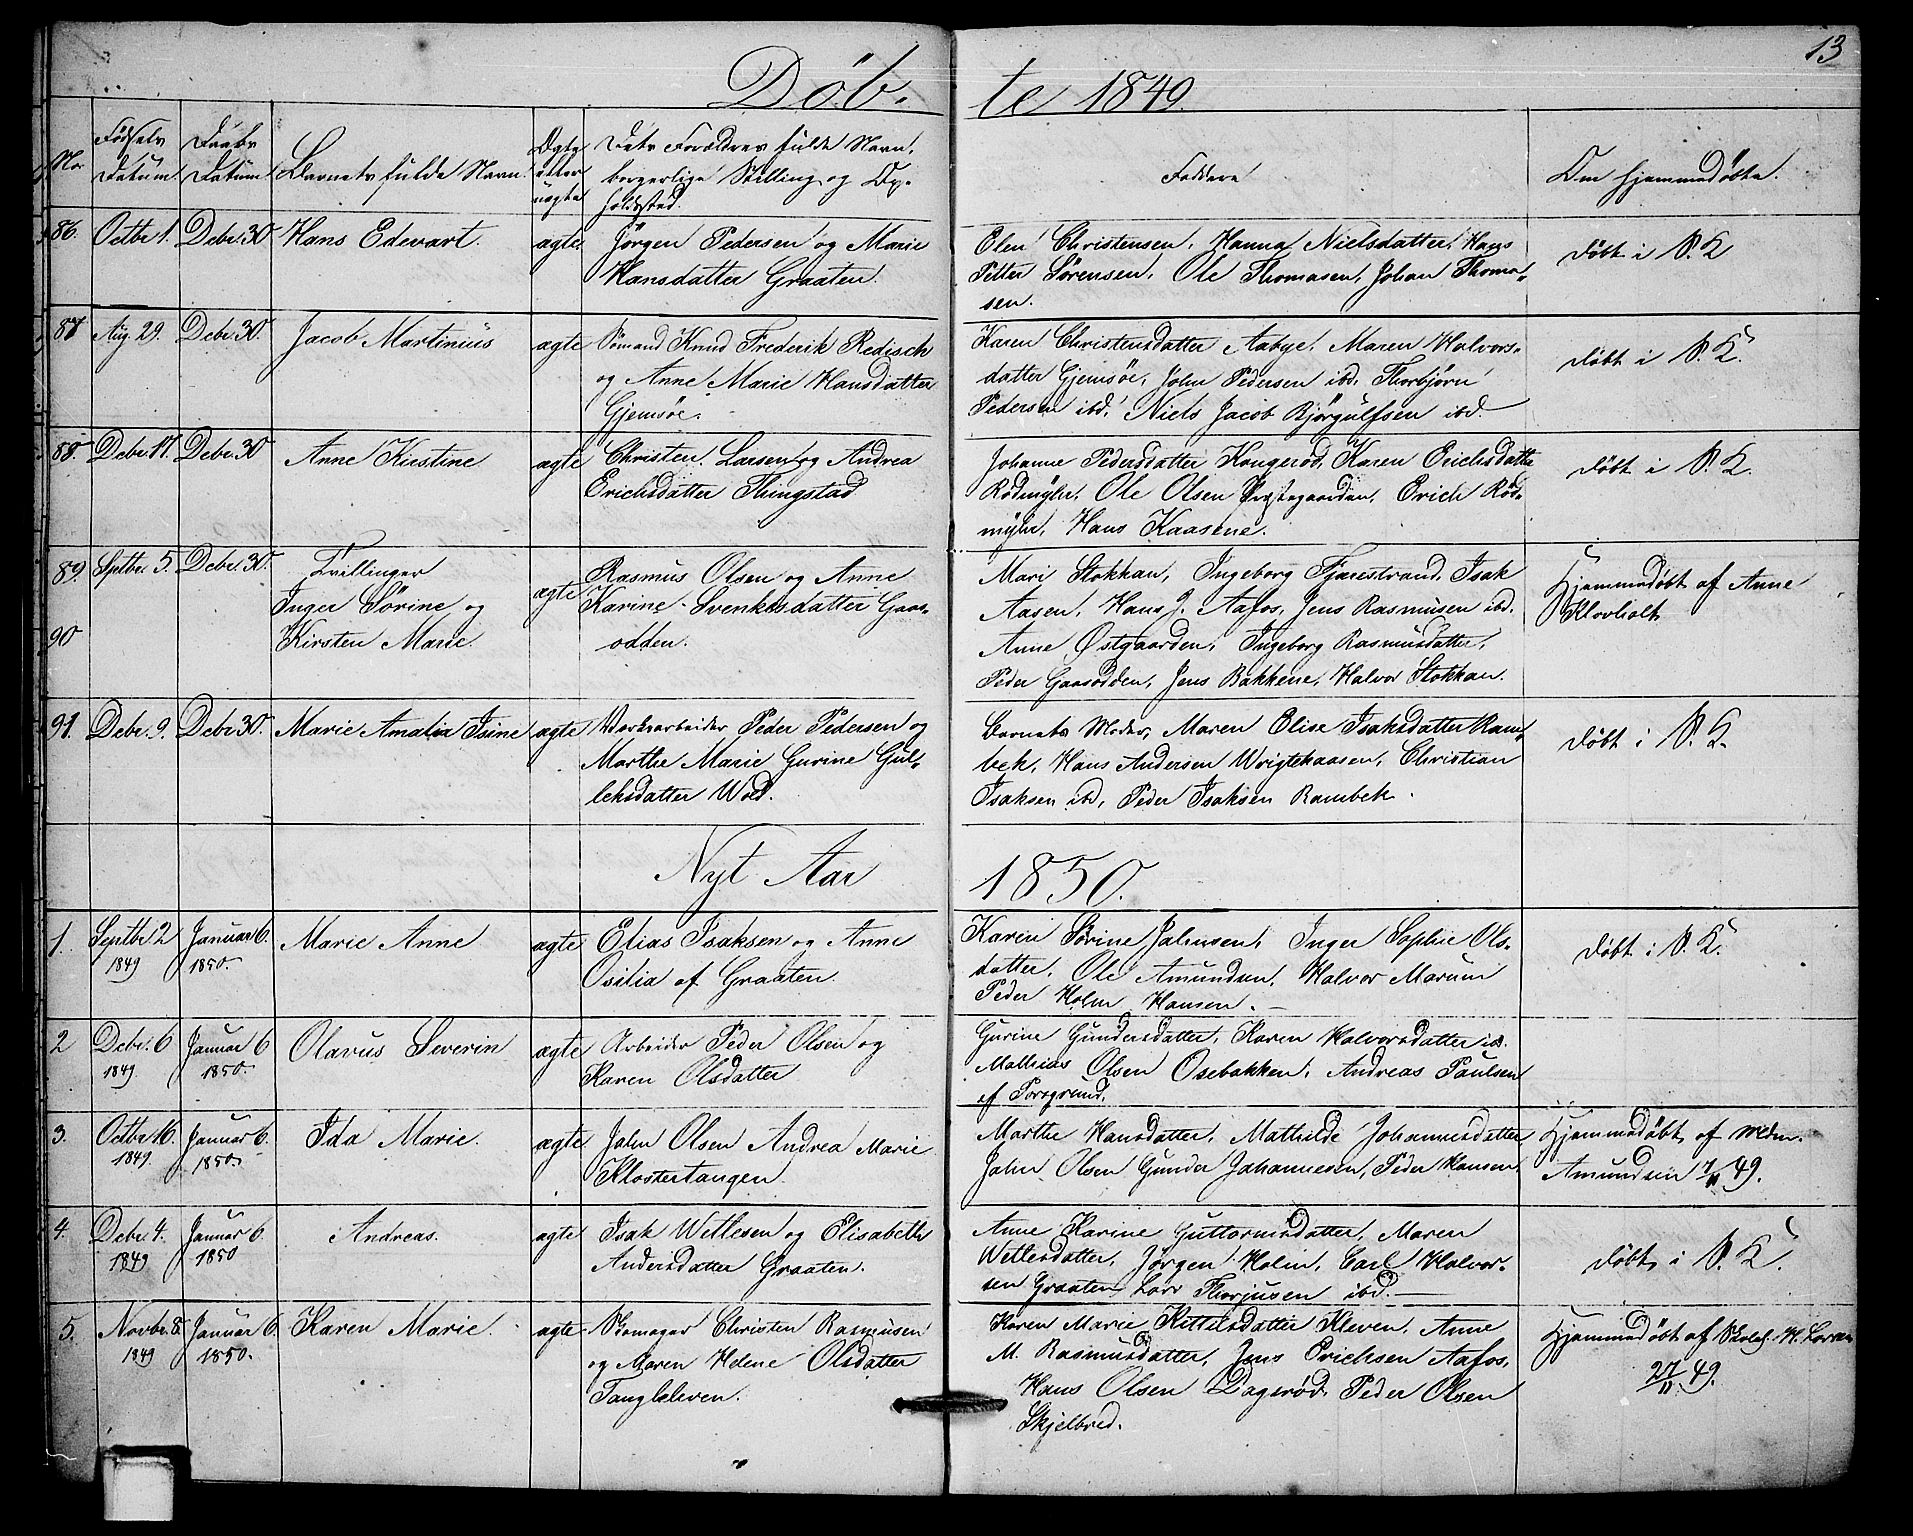 13
Döb- te 1849.
No Fødsels Datum Daabs Datum Barnets fulde Navn Ægte eller uægte Dets Forældres fulde Navn, borgerlige Stilling og Opholdssted. Faddere Om hjemmedøbt.
86. Octbr 1. Debr. 30 Hans Edevart. ægte. Jörgen Pedersen og Marie
Hansdatter Graaten.
Elen Christensen, Hanna Nielsdatter, Hans
Petter Sörensen, Ole Thomasen, Johan Thoma-
sen.
döbt i S. K
87 Aug 29. Debr. 30. Jacob Martinius ægte Sömand Knud Frederik Redisch
og Anne Marie Hansdatter
Gjemsöe.
Karen Christensdatter Aabye, Maren Halvors-
datter Gjemsöe, John Pedersen ibd. Thorbjörn
Pedersen ibd, Niels Jacob Bjørgulfsen ibd.
döbt i S. K.
88. Debr. 17. Debr. 30 Anne Kirstine ægte Christen Larsen og Andrea
Erichsdatter Thingstad
Johanne Pedersdatter Kongerød, Karen Erichsdatter
Rødmyhr, Ole Olsen Præstegaarden, Erich Rød-
myhr, Hans Kaasene.
döbt i S. K.
89. Septbr. 5. Debr. 30. Tvillinger
Inger Sörine og
90 Kirsten Marie. ægte Rasmus Olsen og Anne
Karine Svenkesdatter Gaas-
odden.
Mari Stokkan, Ingeborg Fjærestrand, Isak
Aasen, Hans J. Aafos, Jens Rasmusen ibd.
Anne Østgaarden, Ingeborg Rasmusdatter,
Peder Gaasodden, Jens Bakkene, Halvor Stokkan.
Hjemmedøbt af Anne
Klovholt
91. Debr. 9. Debr 30. Marie Amalia Isine ægte Værksarbeider Peder Pedersen og
Marthe Marie Gurine Gul-
leksdatter Wold.
Barnets Moder, Maren Elise Isaksdatter Ram-
bek, Hans Andersen Wrigtehaasen, Christian
Isaksen ibd, Peder Isaksen Rambek.
döbt i S. K.
Nyt Aar 1850.
1. Septbr 2 1849 Januar 6. 1850. Marie Anne ægte Elias Isaksen og Anne
Osilia af Graaten.
Karen Sörine Johnsen, Inger Sophie Ols-
datter, Ole Amundsen, Halvor Marum
Peder Holm Hansen.
döbt i S. K.
2 Debr. 6 1849. Januar 6 1850. Olavus Severin ægte Arbeider Peder Olsen og
Karen Olsdatter
Gurine Gundersdatter, Karen Halvorsdatter
Mathias Olsen Osebakken, Andreas Paulsen
af Porsgrund.
3. Octbr 16. 1849. Januar 6. 1850. Ida Marie. ægte John Olsen Andrea Marie
Klostertangen.
Marthe Hansdatter, Mathilde Johannesdatter
John Olsen Gunder Johannesen, Peder Hansen.
Hjemmedøbt af Mdm.
Amundsen 7/11 49.
4. Debr 4. 1849 Januar 6. 1850 Andreas. ægte Isak Wetlesen og Elisabeth
Andersdatter Graaten.
Anne Karine Guttormsdatter, Maren
Wetlesdatter, Jörgen Holm, Carl Halvor-
sen Graaten, Lars Thorjusen ibd.
döbt i S. K.
5. Novbr. 8. 1849 Januar 6. 1850. Karen Marie. ægte Skomager Christen Rasmusen
og Maren Helene Olsdatter
Tangleleven.
Karen Marie Kittelsdatter Kleven, Anne
M. Rasmusdatter, Jens Erichsen Aafos,
Hans Olsen Dagsrød, Peder Olsen
Skjelbred.
Hjemmedøbt af Skolel. H. Larsen
27/11 49.